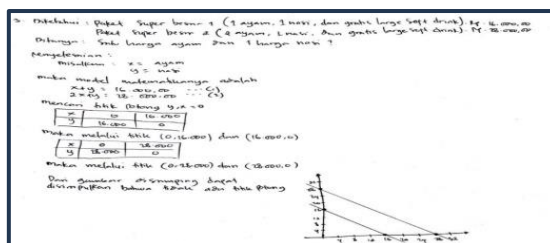 Diketahui : Paket Super besar 1 (1 ayam, 1 nasi, dan gratis large soft drink). Rp. 16.000,00
Paket Super besar 2 (2 ayam, 1 nasi, dan gratis large soft drink). Rp. 28.000,00
Ditanya : harga ayam dan 1 harga nasi ?
Penyelesaian :
Misalkan : x = ayam
y = nasi
maka model matematikanya adalah
x+y = 16.000,00 ...(1)
2x+y = 28.000,00 ...(2)
mencari titik potong y, x = 0
x 0 16.000
y 16.000 0
maka melalui titik (0,16.000) dan (16.000,0)
x 0 28.000
y 28.000 0
maka melalui titik (0,28.000) dan (28.000,0)
Dari gambar disamping dapat
disimpulkan bahwa tidak ada titik potong